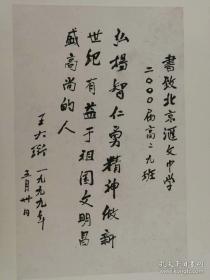 書致北京滙文中学
二〇〇〇届高二九班
弘揚智仁勇精神做新
世纪有益于祖国文明昌
盛高尚的人
王大珩 一九九九年
五月卅日